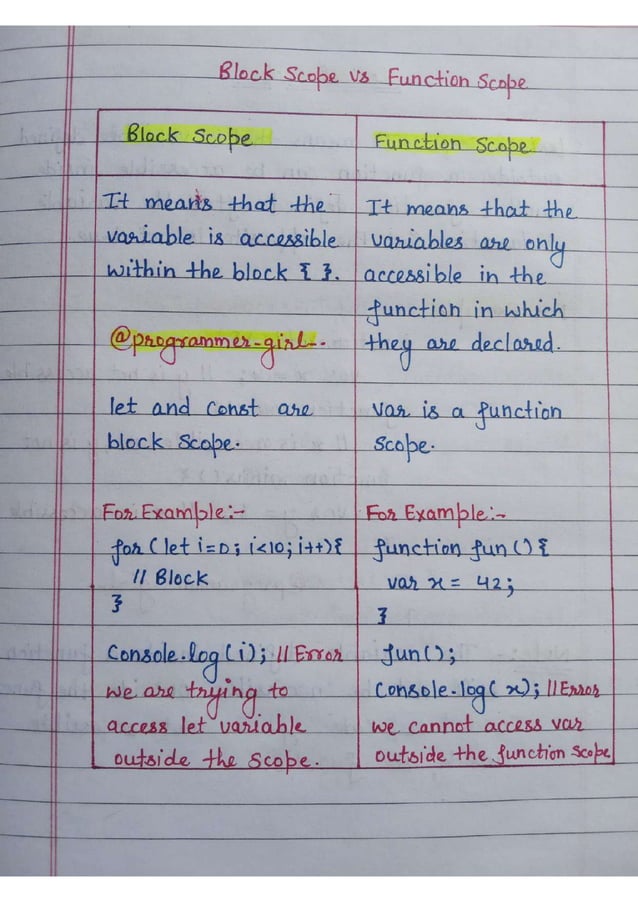 Block Scope vs Function Scope
Block Scope
It means that the
variable is accessible
within the block { }.
@programmer-girl--.
let and Const are
block Scope.
For Example:-
for ( let i=0; i<10; i++){
// Block
}
Console.log(i); // Error
we are trying to
access let variable
outside the Scope.
Function Scope.
It means that the
variables are only
accessible in the
function in which
they are declared.
var is a function
Scope.
For Example:-
function fun () {
var x = 42;
}
fun();
Console.log( x); // Error
we cannot access var
outside the function scope